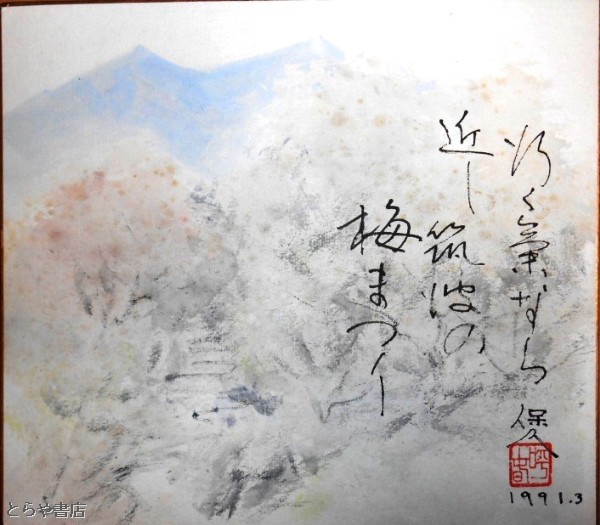 行く氣なら
近し筑波の
梅まつり
保久
1991.3
とらや書店